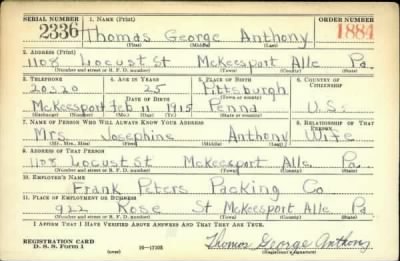 SERIAL NUMBER 1. NAME (Print) ORDER NUMBER
2336 Thomas George Anthony 1884
(First) (Middle) (Last)
2. ADDRESS (Print)
1108 Locust St McKeesport Alle Pa.
(Number and street or R. F. D. number) (Town) (County) (State)
3. TELEPHONE 4. AGE IN YEARS 5. PLACE OF BIRTH 6. COUNTRY OF CITIZENSHIP
20320 25 Pittsburgh
DATE OF BIRTH
McKeesport Feb 11 1915 Penna U.S.
(Exchange) (Number) (Mo.) (Day) (Yr.) (State or country)
7. NAME OF PERSON WHO WILL ALWAYS KNOW YOUR ADDRESS 8. RELATIONSHIP OF THAT PERSON
Mrs. Josephine Anthony Wife
(Mr., Mrs., Miss) (First) (Middle) (Last)
9. ADDRESS OF THAT PERSON
1108 Locust St McKeesport Alle Pa.
(Number and street or R. F. D. number) (Town) (County) (State)
10. EMPLOYER'S NAME
Frank Peters Packing Co
11. PLACE OF EMPLOYMENT OR BUSINESS
922 Rose St McKeesport Alle Pa
(Number and street or R. F. D. number) (Town) (County) (State)
I AFFIRM THAT I HAVE VERIFIED ABOVE ANSWERS AND THAT THEY ARE TRUE.
REGISTRATION CARD
D. S. S. Form 1 (over) 16—17105 Thomas George Anthony
(Registrant's signature)